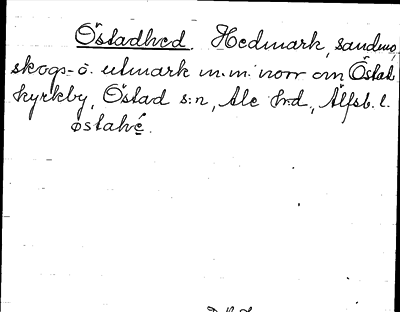 Östadhed. Hedmark, sandmo,
skogs- o. utmark m.m. norr om Östad
kyrkby, Östad s:n, Ale hd, Älfsb. l.
østahé.